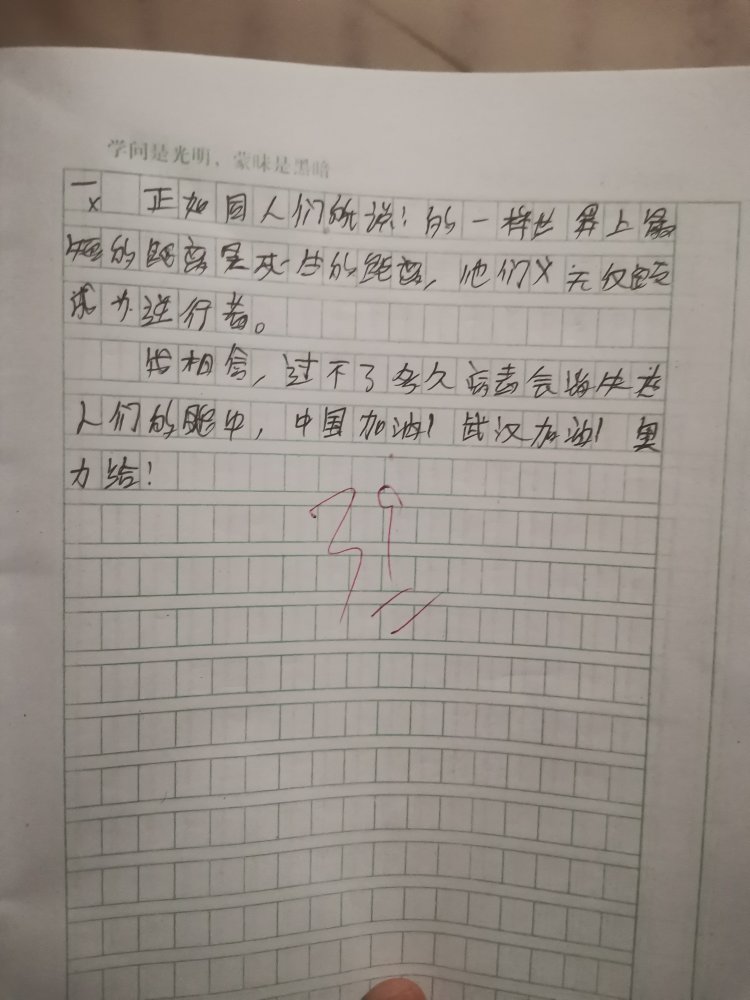 学问是光明，蒙昧是黑暗
一 正如国人们所说：的一样世界上最
短的距离是生的距离，他们义无
逆行者。
相信，过不了多久病毒会消失在
人们的眼中，中国加油！武汉加油！奥
力给！
39